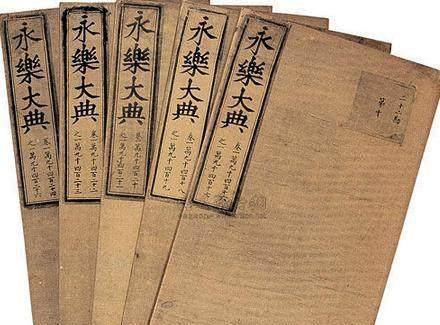 二十二勘
第十
永樂大典
卷一萬九千四百十六
之一萬九千四百十七
永樂大典
卷一萬九千四百十八
之一萬九千四百十九
永樂大典
卷一萬九千四百二十
之一萬九千四百二十一
永樂大典
卷一萬九千四百二十二
之一萬九千四百二十三
永樂大典
之一萬九千四百二十六